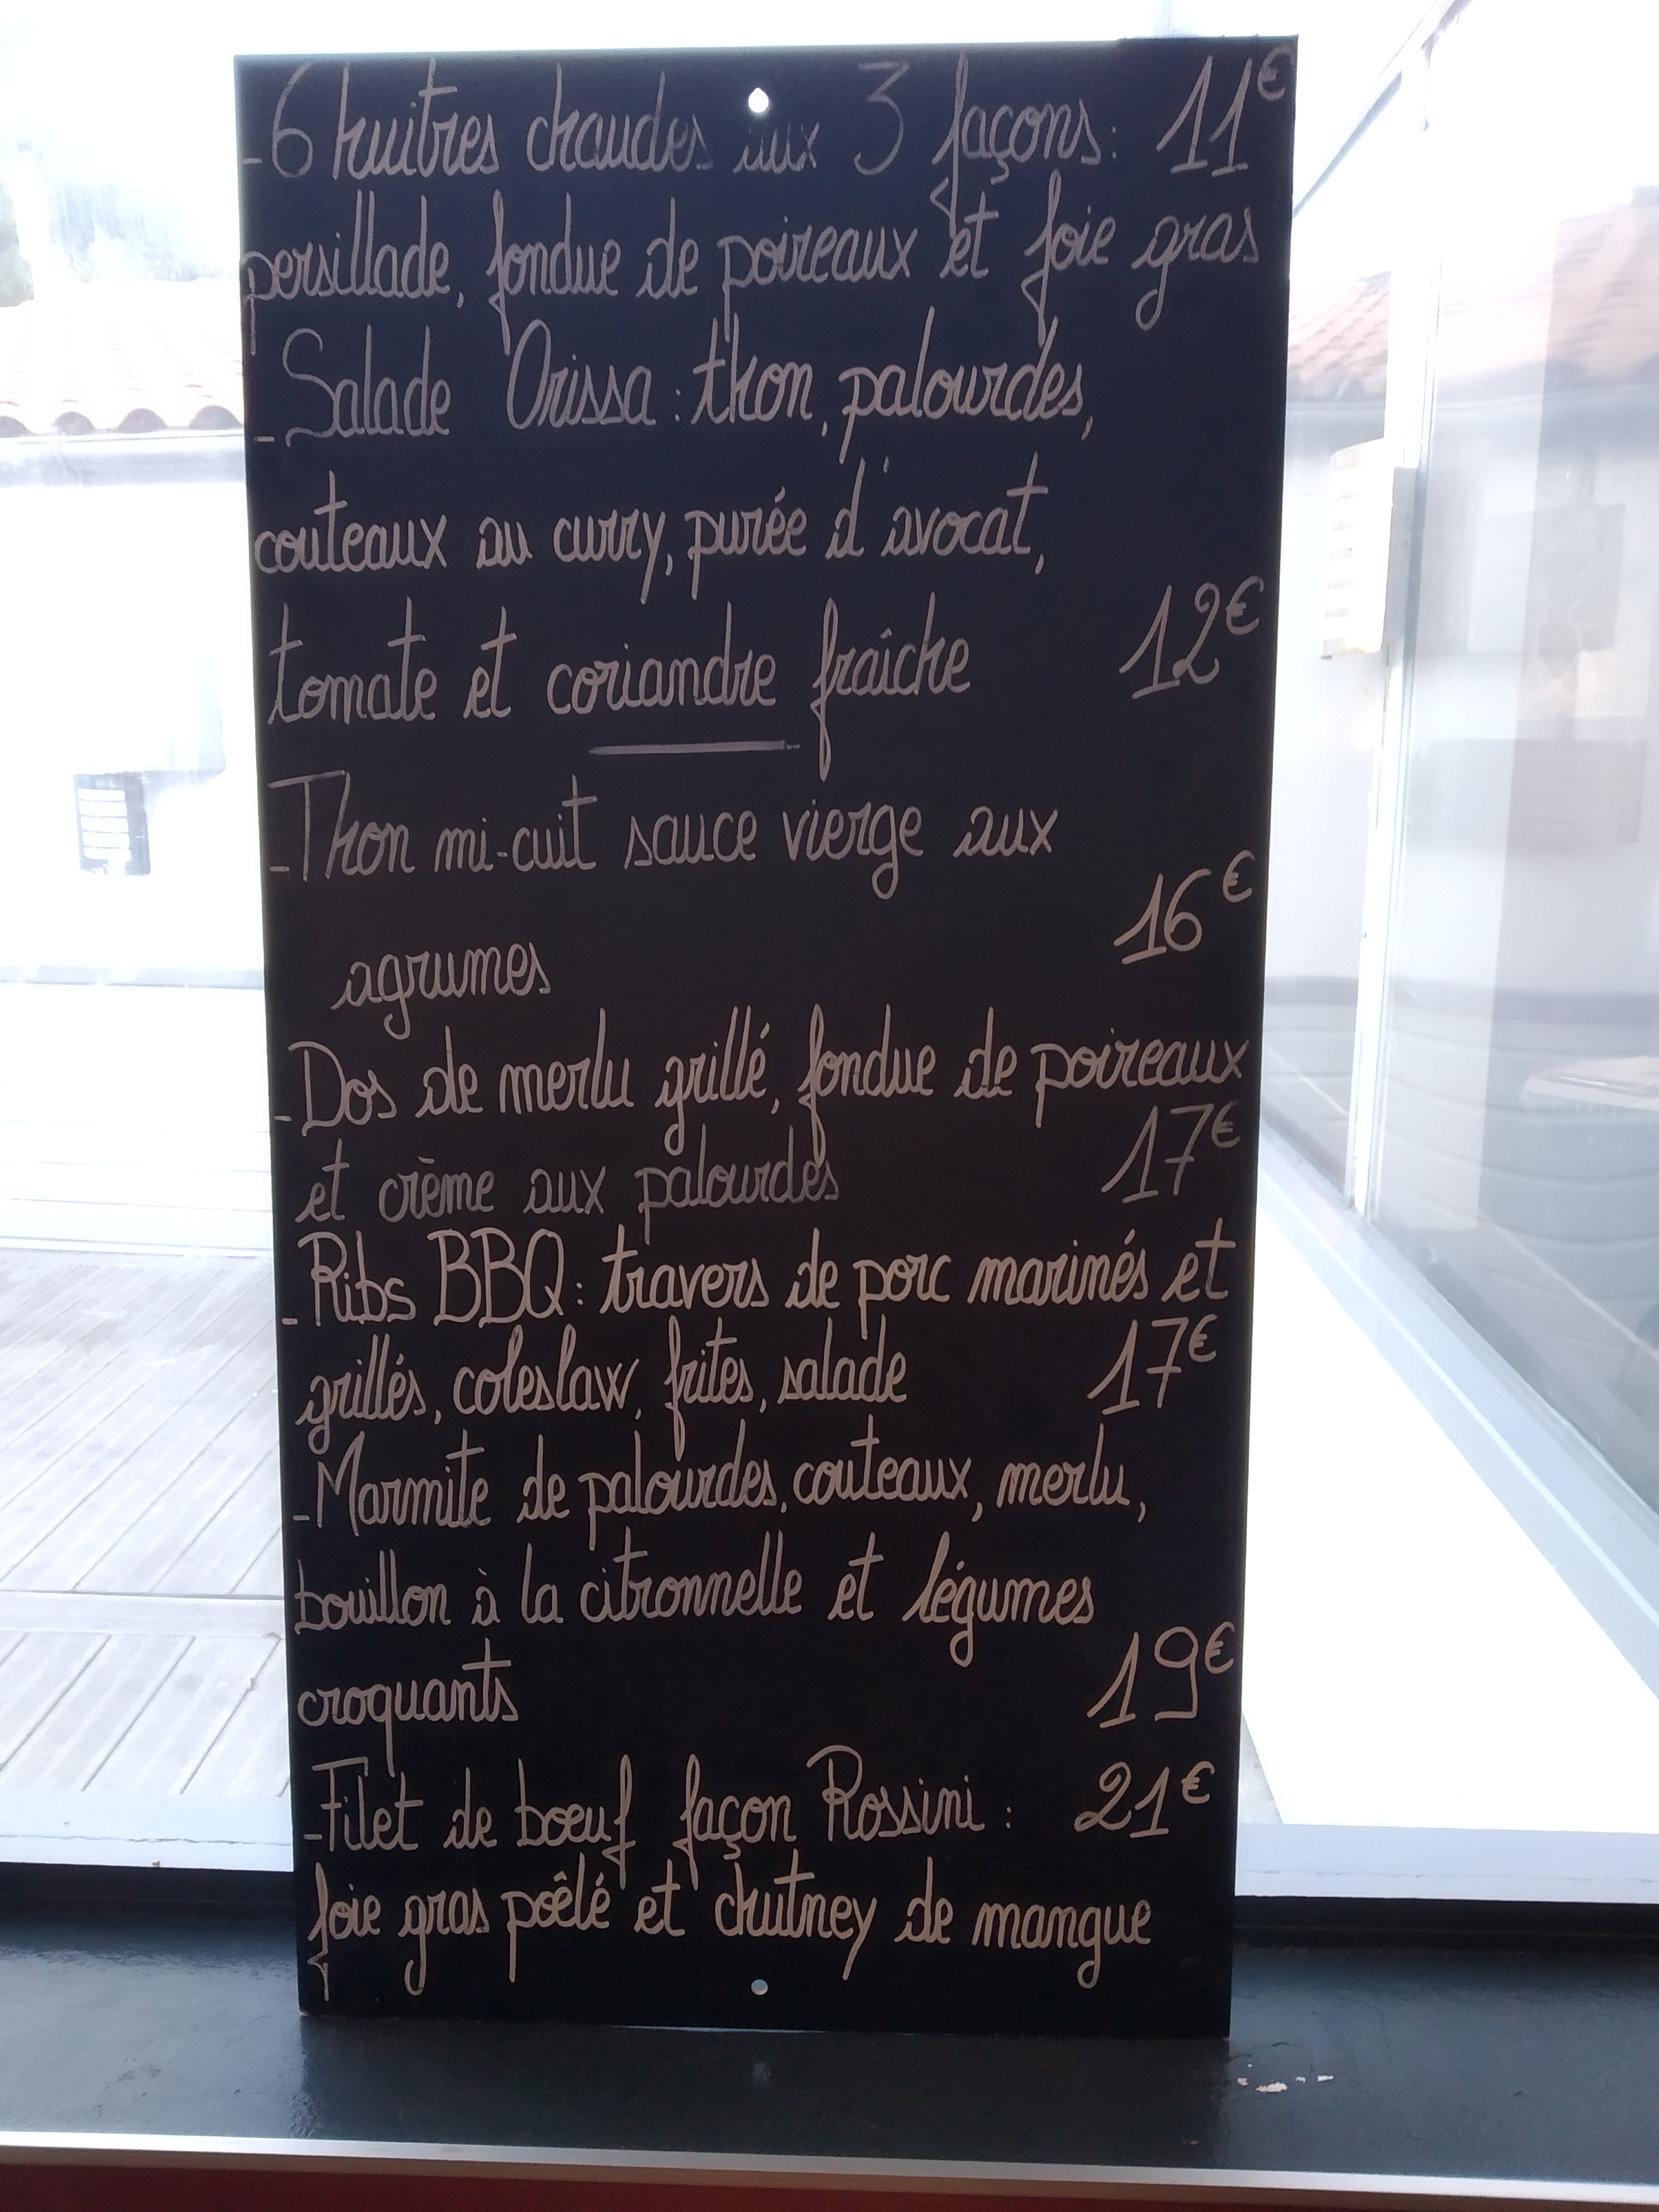 -6 huitres chaudes aux 3 façons: 11€
persillade, fondue de poireaux et foie gras
-Salade Orissa: thon, palourdes,
couteaux au curry, purée d'avocat,
tomate et coriandre fraîche 12€
-Thon mi-cuit sauce vierge aux
agrumes 16€
-Dos de merlu grillé, fondue de poireaux
et crème aux palourdes 17€
-Ribs BBQ: travers de porc marinés et
grillés, coleslaw, frites, salade 17€
-Marmite de palourdes, couteaux, merlu,
bouillon à la citronnelle et légumes
croquants 19€
-Filet de boeuf façon Rossini: 21€
foie gras poêlé et chutney de mangue